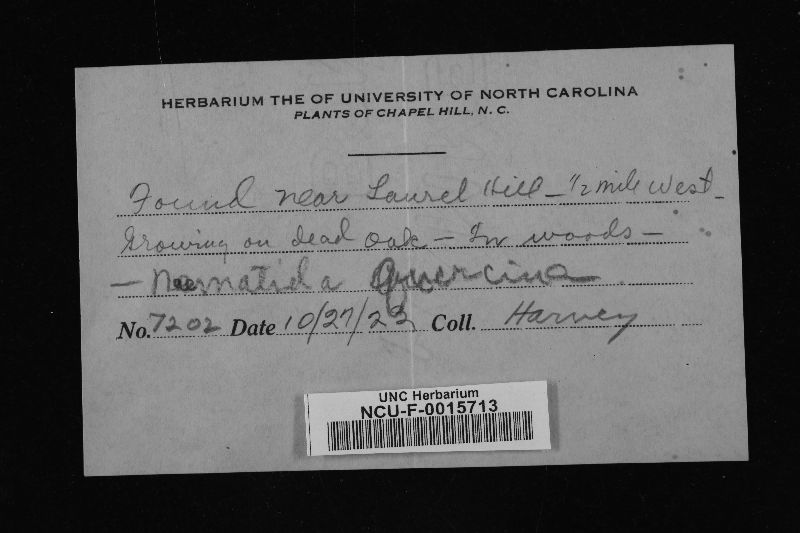 HERBARIUM THE OF UNIVERSITY OF NORTH CAROLINA
PLANTS OF CHAPEL HILL, N. C.
Found near Laurel Hill - 1/2 mile West -
Growing on dead oak - In woods -
- quercina
No. 7202 Date 10/27/23 Coll. Harvey
UNC Herbarium
NCU-F-0015713